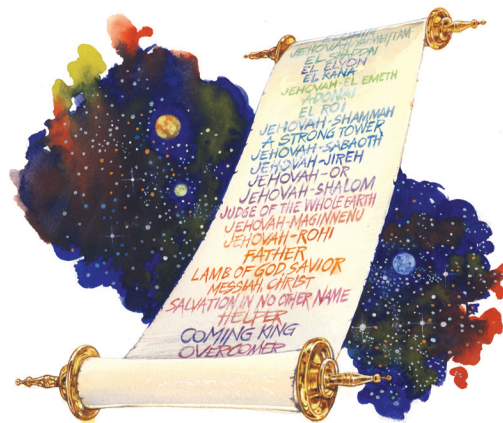 ELOHIM
JEHOVAH
EL SHADDAI
EL ELYON
EL KANA
JEHOVAH-EL EMETH
ADONAI
EL ROI
JEHOVAH-SHAMMAH
A STRONG TOWER
JEHOVAH-SABAOTH
JEHOVAH-JIREH
JEHOVAH-OR
JEHOVAH-SHALOM
JUDGE OF THE WHOLE EARTH
JEHOVAH-MAGINNENU
JEHOVAH-ROHI
FATHER
LAMB OF GOD, SAVIOR
MESSIAH, CHRIST
SALVATION IN NO OTHER NAME
HELPER
COMING KING
OVERCOMER